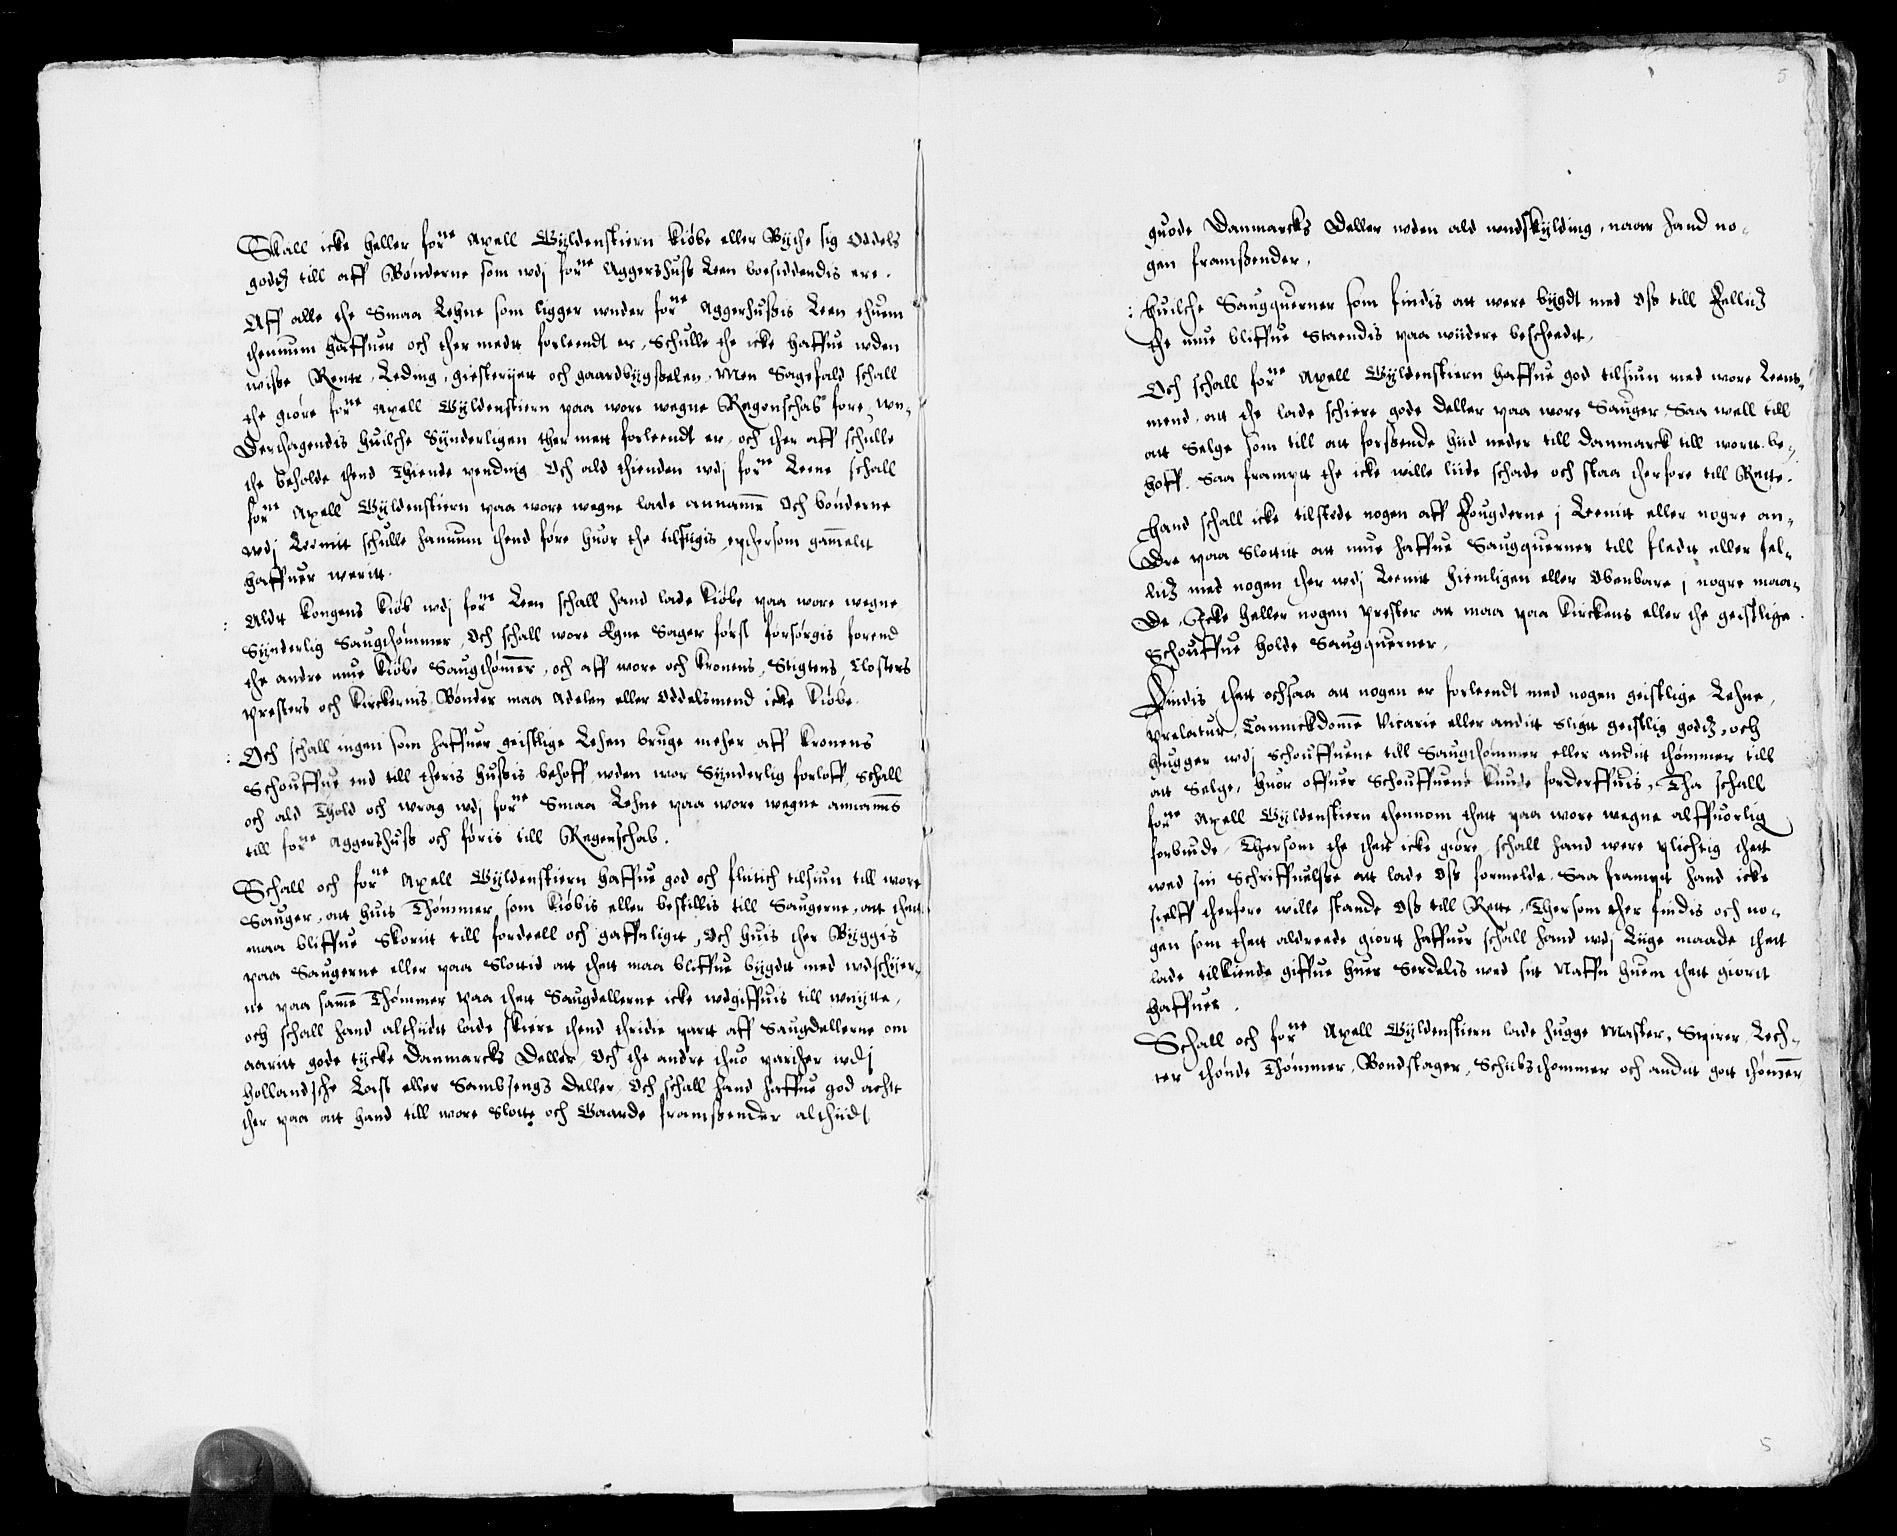 Skall icke heller forne Axell Gyldenstiern kiøbe eller Byche sig Oddels
godtz till aff Bønderne som wdj forne Aggershuss Leen boesiddendis ere.
Aff alle the Smaa Lehne som ligger wnder forne Aggershussis Leen ehuem
thennum haffuer och ther medtt forleendt er, Schulle the icke haffue wden
wisse Rente, Leding, giesterijett och gaardbygsselen, Men Sagefald schall
the giøre forne Axell Gyldenstiern paa wore wegne Regenschab fore, wn-
Derthagendis huilche Synderligen ther mett forleendt er, och ther aff schulle
the beholde thend Thiende pending Och ald thienden wdj forne Leene schall
forne Axell Gyldenstiern paa wore wegne lade annamme Och bønderne
wdj Leenitt schulle hannum thend føre huor the tilsigis, epthersom gammelt
haffuer weritt.
: Aldtt Kongens kiøb wdj forne Leen schall hand lade kiøbe paa wore wegne
Synderlig Saugthømmer, Och schall wore Egne Sager først forsørgis forend
the andre mue kiøbe Saugthømmer, och aff wore och Kronens, Stigtens, Closters
presters och Kirckernis Bønder maa Adelen eller Oddelsmend icke kiøbe.
: Och schall ingen som haffuer geistlige Lehen bruge meher aff Kronens
Schouffue end till theris hussis behoff, wden wor Synderlig forloff, Schall
och ald Thold och wrag wdj forne Smaa Lehne paa wore wegne annammis
till forne Aggershuss och føris till Regenschab.
Schall och forne Axell Gyldenstiern haffue god och flittich tilsiun till wore
Sauger, att huis Thømmer som kiøbis eller bestillis till Saugerne, att thett
maa bliffue Skoritt till fordeell och gaffnligtt, Och huis ther Byggis
paa Saugerne eller paa Slottid att thett maa bliffue bygdtt med wdschyer-
ne paa samme Thømmer paa thett Saugdellerne icke wdgiffuis till wnytte,
och schall hand althiidtt lade skiere thend thridie partt aff Saugdellerne om
aaritt gode tycke Danmarcks Deller, Och the andre thuo parther wdj
hollandsche Last eller Sambsengs deller, Och schall hand haffue god achtt
ther paa att hand till wore Slotte och Gaarde framssender althiidt
guode Danmarcks Deller wden ald wndskylding, naar hand no-
gen framssender.
: Huilche Saugquerner som findis att were bygdt med Oss till Felliitz
the mue bliffue Staendis paa wiidere bescheedtt,
Och schall forne Axell Gyldenstiern haffue god tilsiun med wore Leens-
mend, att the lade schiere gode deller paa wore Sauger, Saa well till
att Selge som till att forssende hiid neder till Danmarck till wortt be-
hoff. Saa framptt the icke wille liide schade och staa therfore till Rette.
Hand schall icke tilstede nogen aff Fougderne j Leenitt eller nogre an-
Dre paa Slottitt att mue haffue Saugquerner till fledtt eller fel-
liitz med nogen ther wdj Leenitt hiemligen eller Obenbare j nogre maa-
De, Icke heller nogen prester att maa paa Kirckens eller the geistlige
Schouffue holde Saugquerner,
Findis thett ochsaa att nogen er forleendt med nogen geistlige Lehne,
prelatur, Cannickdomme Vicarie eller anditt sligtt geistlig godtz, och
hugger wdj Schouffuene till Saugthømmer eller anditt thømmer till
att Selge, huor offuer Schouffuene kunde forderffuis, Tha schall
forne Axell Gyldenstiern thennom thett paa wore wegne alffuorlig
forbiude, Thersom the thett icke giøre, schall hand were plichtig thett
wed siin Schriffuelsse att lade Oss formelde, Saa framptt hand icke
sielff therfore wille stande Oss till Rette, Thersom ther findis och no-
gen som thett aldreede giortt haffuer schall hand wdj Liige maade thett
lade tilkiende giffue huer Serdelis wed sitt Naffn huem thett giortt
haffuer.
Schall och forne Axell Gyldenstiern lade hugge Master, Spirer, Lech-
ter thønde Thømmer, Bondstager, Schiibsthommer och anditt gott thømmer